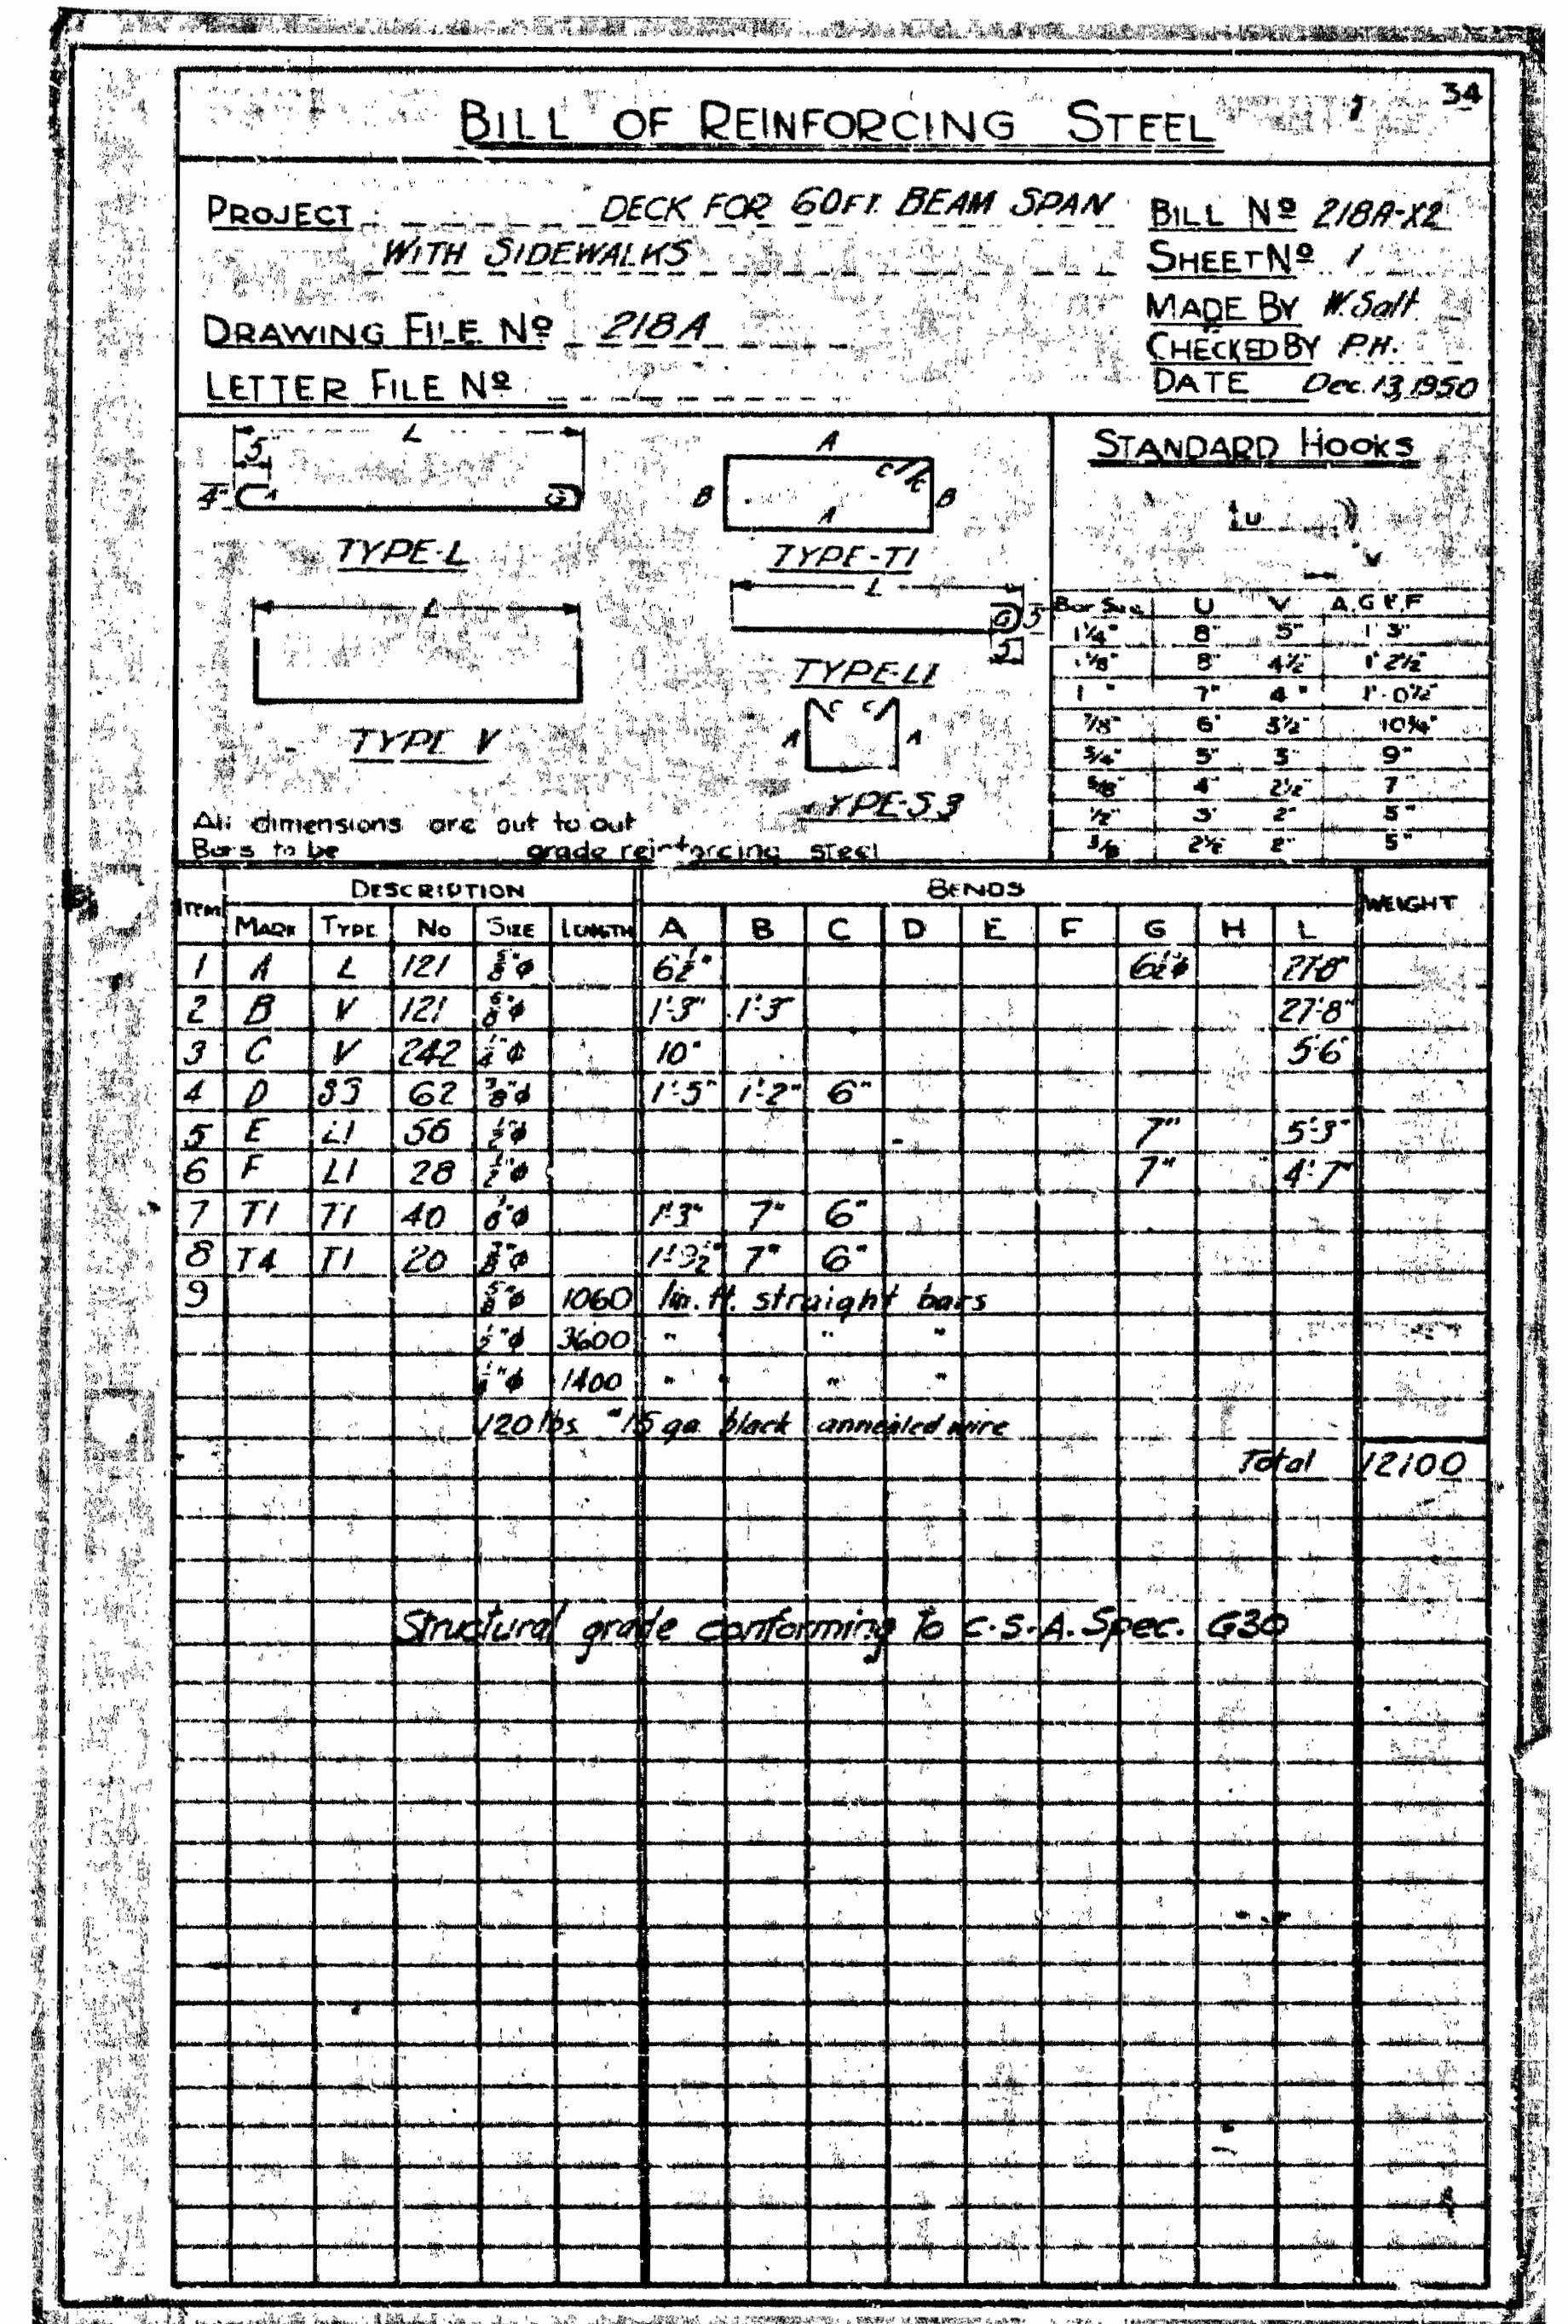 34
BILL OF REINFORCING STEEL
PROJECT DECK FOR 60FT. BEAM SPAN
WITH SIDEWALKS
DRAWING FILE Nº 218A
LETTER FILE Nº
BILL Nº 218A-X2
SHEET Nº 1
MADE BY W. Salt.
CHECKED BY P.H.
DATE Dec. 13, 1950
L
5"
4"
A
G
TYPE-L
A
C C
B B
A
TYPE-T1
L
TYPE V
L
G 5"
5"
TYPE-L1
C C
A A
YPE-S3
All dimensions are out to out
Bars to be grade reinforcing steel
STANDARD HOOKS
U
V
Bar Size U V A.G & F
1¼" 8" 5" 1' 3"
1⅛" 8" 4½" 1' 2½"
1" 7" 4" 1'-0½"
7/8" 6" 3½" 10¾"
3/4" 5" 3" 9"
5/8" 4" 2½" 7"
1/2" 3" 2" 5"
3/8" 2½" 2" 5"
ITEM DESCRIPTION BENDS WEIGHT
MARK TYPE No SIZE LENGTH A B C D E F G H L
1 A L 121 5/8"φ 6½" 6½" 27'8"
2 B V 121 5/8"φ 1'-3" 1'-3" 27'-8"
3 C V 242 1/4"φ 10" 5'6"
4 D S3 62 3/8"φ 1'-5" 1'-2" 6"
5 E L1 56 1/2"φ 7" 5'-3"
6 F L1 28 1/2"φ 7" 4'-7"
7 T1 T1 40 1'-3" 7" 6"
8 T4 T1 20 3/8"φ 1'-9½" 7" 6"
9 5/8"φ 1060 lin. ft. straight bars
1/2"φ 3600 " " " "
1400 " " " "
120 lbs. #15 ga. black annealed wire
Total 12100
Structural grade conforming to C.S.A. Spec. G30